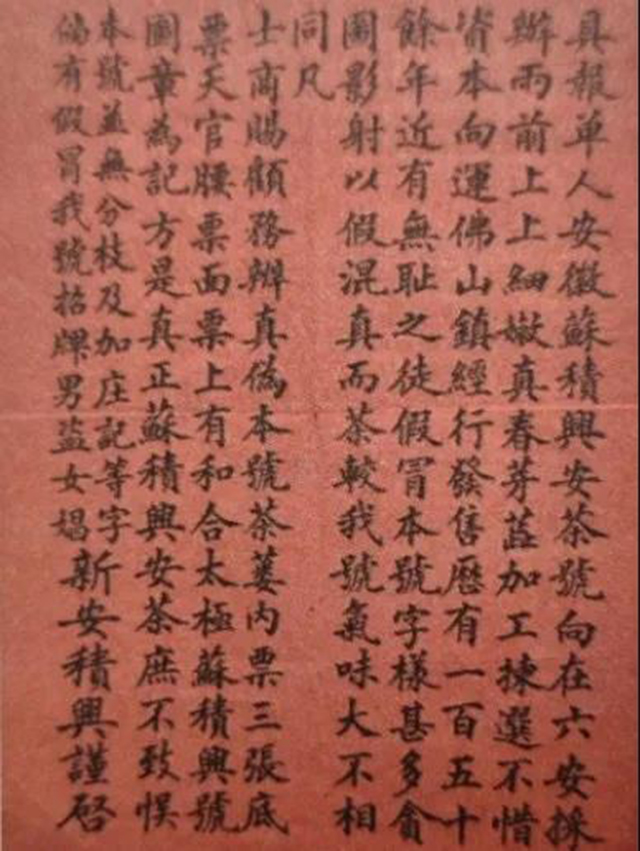 具報单人安徽蘇積興安茶號向在六安採
辦雨前上上細嫩真春芽蕋加工揀選不惜
資本向運佛山鎮經行發售歷有一百五十
餘年近有無耻之徒假冒本號字樣甚多貪
圖影射以假混真而茶較我號氣味大不相
同凡
士商賜顧務辨真偽本號茶蔞内票三張底
票天官腰票面票上有和合太極蘇積興號
圖章為記方是真正蘇積興安茶庶不致悮
本號並無分枝及加庄記等字
倘有假冒我號招牌男盗女娼
新安積興謹啓